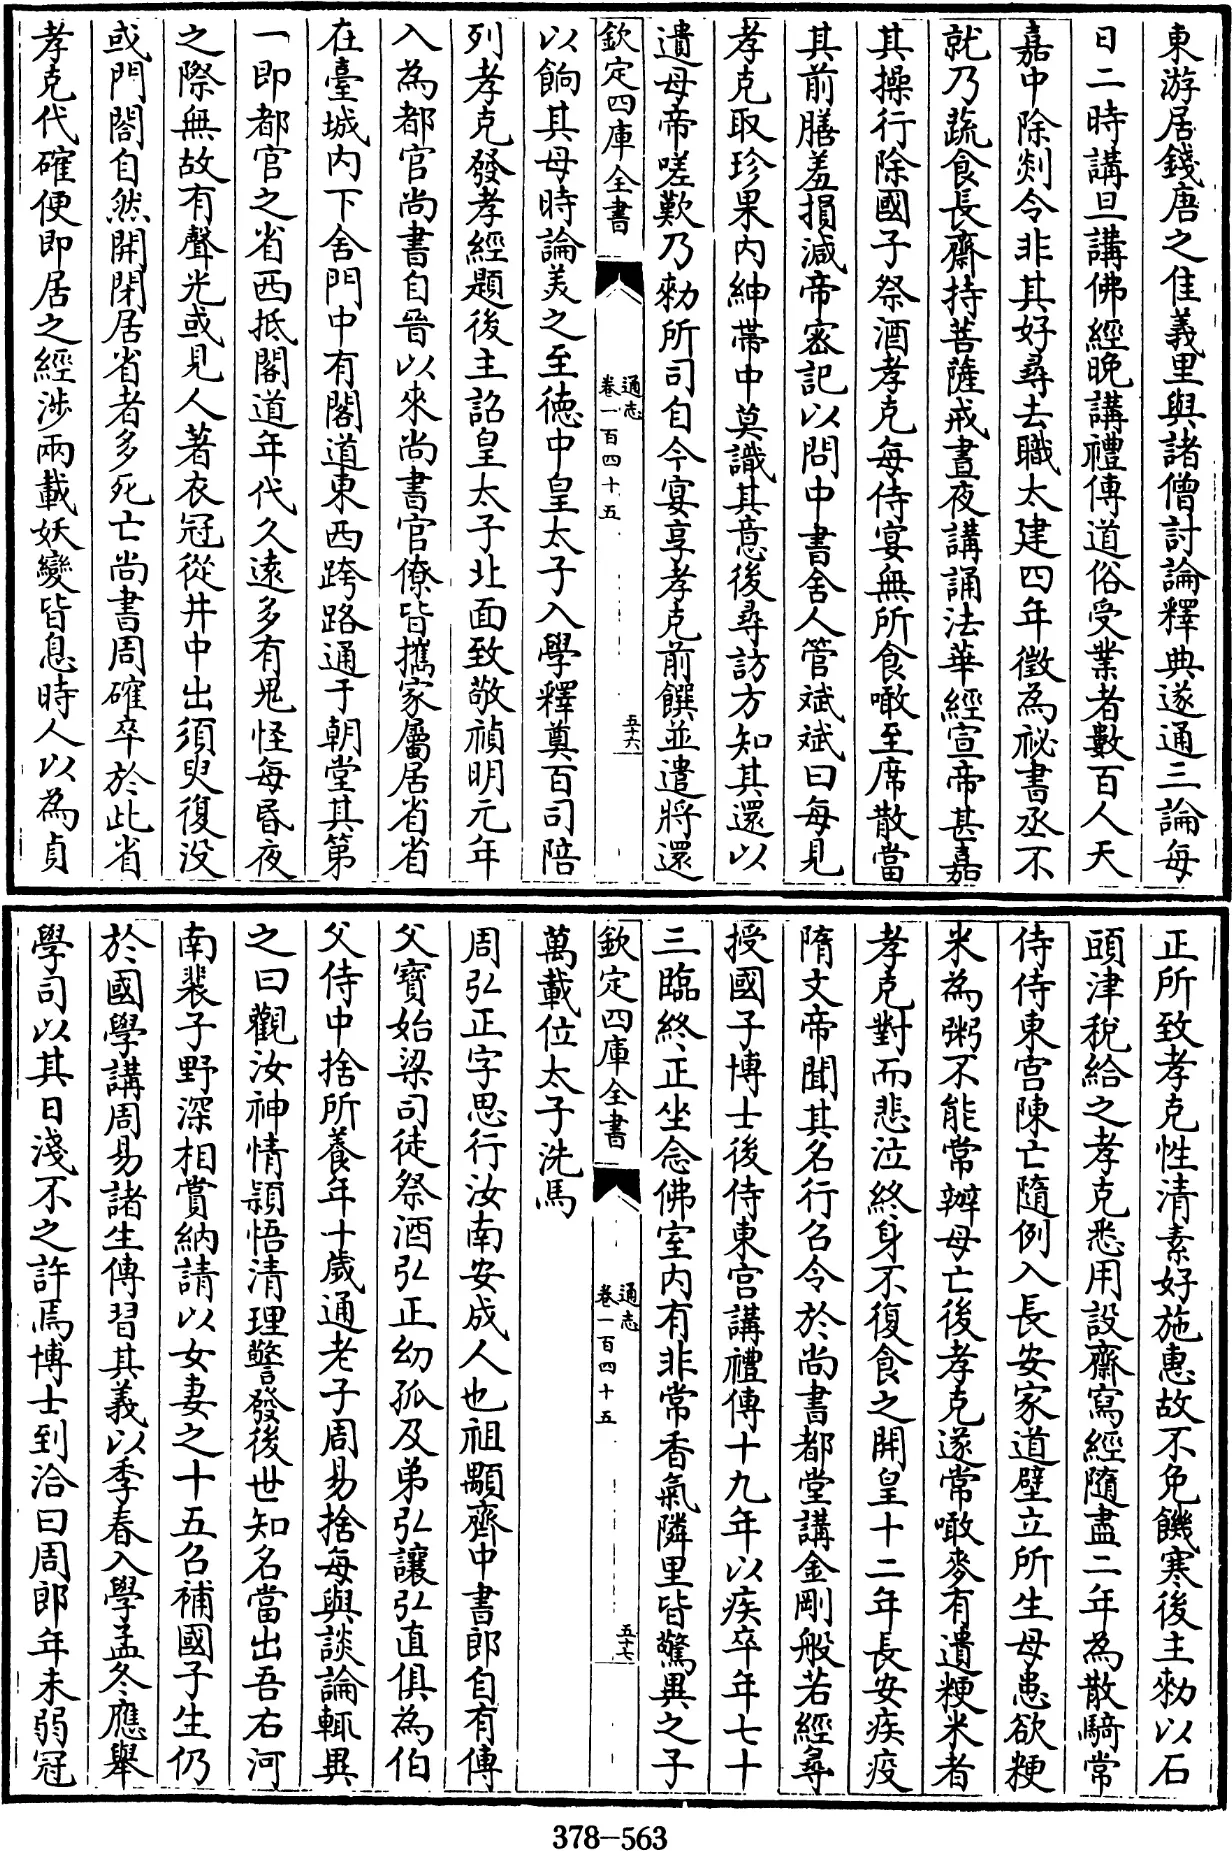 東游居錢唐之佳義里與諸僧討論釋典遂通三論每
日二時講旦講佛經晚講禮傳道俗受業者數百人天
嘉中除剡令非其好尋去職太建四年徵為祕書丞不
就乃蔬食長齋持菩薩戒晝夜講誦法華經宣帝甚嘉
其操行除國子祭酒孝克每侍宴無所食噉至席散當
其前膳羞損減帝密記以問中書舍人管斌斌曰每見
孝克取珍果内紳帶中莫識其意後尋訪方知其還以
遺母帝嗟歎乃勑所司自今宴享孝克前饌並遣將還
欽定四庫全書
通志
卷一百四十五
五十六
以餉其母時論美之至德中皇太子入學釋奠百司陪
列孝克發孝經題後主詔皇太子北面致敬禎明元年
入為都官尚書自晉以來尚書官僚皆攜家屬居省省
在臺城内下舍門中有閣道東西跨路通于朝堂其第
一即都官之省西抵閣道年代久遠多有鬼怪每昬夜
之際無故有聲光或見人著衣冠從井中出須臾復没
或門閤自然開閉居省者多死亡尚書周確卒於此省
孝克代確便即居之經涉兩載妖變皆息時人以為貞
正所致孝克性清素好施惠故不免饑寒後主勑以石
頭津税給之孝克悉用設齋寫經隨盡二年為散騎常
侍侍東宫陳亡隨例入長安家道壁立所生母患欲粳
米為粥不能常辦母亡後孝克遂常噉麥有遺粳米者
孝克對而悲泣終身不復食之開皇十二年長安疾疫
隋文帝聞其名行召令於尚書都堂講金剛般若經尋
授國子博士後侍東宫講禮傳十九年以疾卒年七十
三臨終正坐念佛室内有非常香氣隣里皆驚異之子
欽定四庫全書
通志
卷一百四十五
五十七
萬載位太子洗馬
周弘正字思行汝南安成人也祖顒齊中書郎自有傳
父寶始梁司徒祭酒弘正幼孤及弟弘讓弘直俱為伯
父侍中捨所養年十歲通老子周易捨每與談論輒異
之曰觀汝神情穎悟清理警發後世知名當出吾右河
南裴子野深相賞納請以女妻之十五召補國子生仍
於國學講周易諸生傳習其義以季春入學孟冬應舉
學司以其日淺不之許焉博士到洽曰周郎年未弱冠
378—563